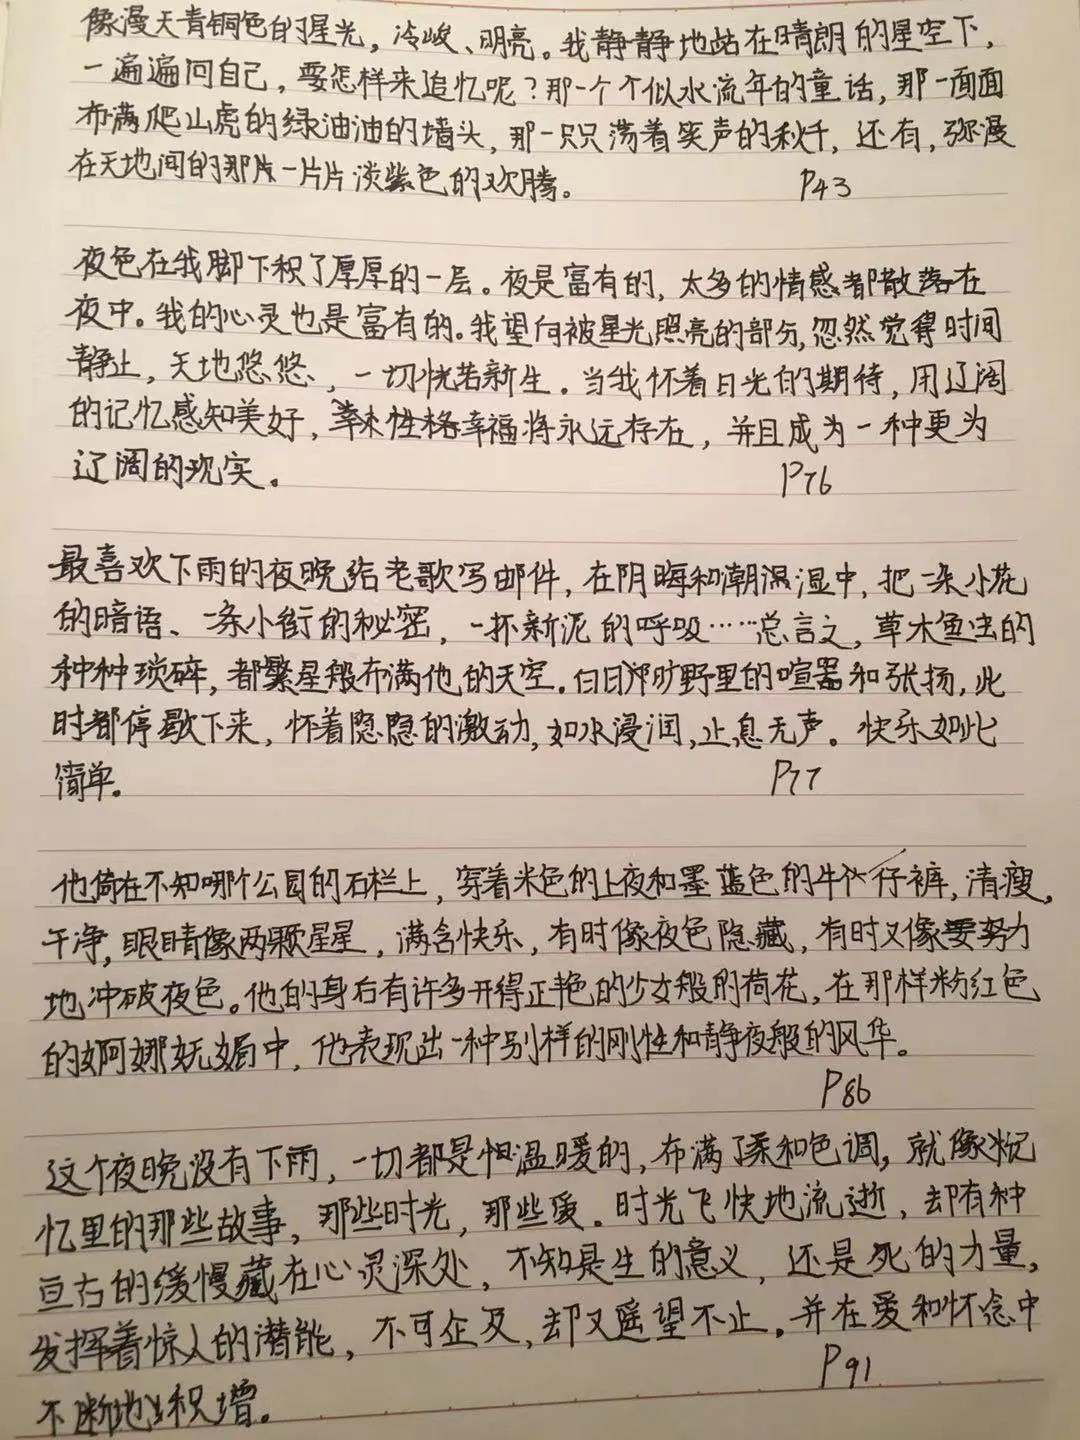 像漫天青铜色的星光，冷峻、明亮。我静静地站在晴朗的星空下，
一遍遍问自己，要怎样来追忆呢？那一个个似水流年的童话，那一面面
布满爬山虎的绿油油的墙头，那一只只荡着笑声的秋千，还有，弥漫
在天地间的那片一片片淡紫色的欢腾。 P43
夜色在我脚下积了厚厚的一层。夜是富有的，太多的情感都散落在
夜中。我的心灵也是富有的。我望向被星光照亮的部分，忽然觉得时间
静止，天地悠悠，一切恍若新生。当我怀着日光的期待，用辽阔
的记忆感知美好，幸福将永远存在，并且成为一种更为
辽阔的现实。 P76
最喜欢下雨的夜晚给老歌写邮件，在阴晦和潮湿中，把一朵小花
的暗语、一条小街的秘密，一抔新泥的呼吸……总言之，草木鱼虫的
种种琐碎，都繁星般布满他的天空。白日那旷野里的喧嚣和张扬，此
时都停歇下来，怀着隐隐的激动，如水浸润，止息无声。快乐如此
简单。 P77
他倚在不知哪个公园的石栏上，穿着米色的上衣和墨蓝色的牛仔裤，清瘦，
干净，眼睛像两颗星星，满含快乐，有时像夜色隐藏，有时又像要努力
地冲破夜色。他的身后有许多开得正艳的少女般的荷花，在那样粉红色
的婀娜妩媚中，他表现出一种别样的刚性和静夜般的风华。
P86
这个夜晚没有下雨，一切都是恒温暖的，布满了柔和色调，就像记
忆里的那些故事，那些时光，那些爱。时光飞快地流逝，却有种
亘古的缓慢藏在心灵深处，不知是生的意义，还是死的力量，
发挥着惊人的潜能，不可企及，却又遥望不止。并在爱和怀念中
不断地积增。 P91